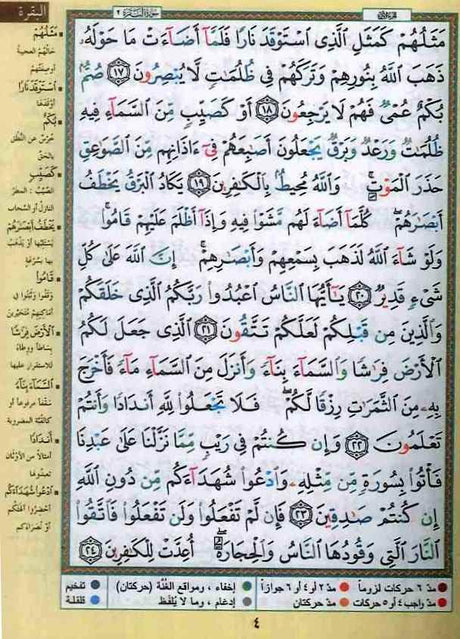 البقرة
سورة البقرة ٢
الجزء الأول
مَثَلُهُمْ كَمَثَلِ ٱلَّذِى ٱسْتَوْقَدَ نَارًا فَلَمَّآ أَضَآءَتْ مَا حَوْلَهُۥ
ذَهَبَ ٱللَّهُ بِنُورِهِمْ وَتَرَكَهُمْ فِى ظُلُمَٰتٍ لَّا يُبْصِرُونَ ١٧ صُمٌّۢ
بُكْمٌ عُمْىٌ فَهُمْ لَا يَرْجِعُونَ ١٨ أَوْ كَصَيِّبٍ مِّنَ ٱلسَّمَآءِ فِيهِ
ظُلُمَٰتٌ وَرَعْدٌ وَبَرْقٌ يَجْعَلُونَ أَصَٰبِعَهُمْ فِىٓ ءَاذَانِهِم مِّنَ ٱلصَّوَٰعِقِ
حَذَرَ ٱلْمَوْتِ ۚ وَٱللَّهُ مُحِيطٌۢ بِٱلْكَٰفِرِينَ ١٩ يَكَادُ ٱلْبَرْقُ يَخْطَفُ
أَبْصَٰرَهُمْ ۖ كُلَّمَآ أَضَآءَ لَهُم مَّشَوْا۟ فِيهِ وَإِذَآ أَظْلَمَ عَلَيْهِمْ قَامُوا۟ ۚ
وَلَوْ شَآءَ ٱللَّهُ لَذَهَبَ بِسَمْعِهِمْ وَأَبْصَٰرِهِمْ ۚ إِنَّ ٱللَّهَ عَلَىٰ كُلِّ
شَىْءٍ قَدِيرٌ ٢٠ يَٰٓأَيُّهَا ٱلنَّاسُ ٱعْبُدُوا۟ رَبَّكُمُ ٱلَّذِى خَلَقَكُمْ
وَٱلَّذِينَ مِن قَبْلِكُمْ لَعَلَّكُمْ تَتَّقُونَ ٢١ ٱلَّذِى جَعَلَ لَكُمُ
ٱلْأَرْضَ فِرَٰشًا وَٱلسَّمَآءَ بِنَآءً وَأَنزَلَ مِنَ ٱلسَّمَآءِ مَآءً فَأَخْرَجَ
بِهِۦ مِنَ ٱلثَّمَرَٰتِ رِزْقًا لَّكُمْ ۖ فَلَا تَجْعَلُوا۟ لِلَّهِ أَندَادًا وَأَنتُمْ
تَعْلَمُونَ ٢٢ وَإِن كُنتُمْ فِى رَيْبٍ مِّمَّا نَزَّلْنَا عَلَىٰ عَبْدِنَا
فَأْتُوا۟ بِسُورَةٍ مِّن مِّثْلِهِۦ وَٱدْعُوا۟ شُهَدَآءَكُم مِّن دُونِ ٱللَّهِ
إِن كُنتُمْ صَٰدِقِينَ ٢٣ فَإِن لَّمْ تَفْعَلُوا۟ وَلَن تَفْعَلُوا۟ فَٱتَّقُوا۟
ٱلنَّارَ ٱلَّتِى وَقُودُهَا ٱلنَّاسُ وَٱلْحِجَارَةُ ۖ أُعِدَّتْ لِلْكَٰفِرِينَ ٢٤
مَثَلُهُمْ
حالُهُمُ العجيبةُ
أو صِفَتُهُمْ
اسْتَوْقَدَ نَارًا
أوْقَدَها
بُكْمٌ
خُرْسٌ عن النُّطْقِ
بالحقّ
كَصَيِّبٍ
الصَّيِّبُ: المطرُ
النازلُ أو السَّحاب
يَخْطَفُ أَبْصَارَهُمْ
يَسْتَلِبُها أو يَذْهَبُ
بها بسُرْعَةٍ
قَامُوا
وَقَفُوا وَثَبَتُوا في
أماكِنِهِمْ مُتَحَيِّرين
الأَرْضَ فِرَاشًا
بِساطًا ووِطاءً
للاستقرار عليها
السَّمَاءَ بِنَاءً
سَقْفًا مرفوعًا أو
كالقُبَّة المضروبة
أَنْدَادًا
أمثالًا من الأوثان
تعبدُونها
ادْعُوا شُهَدَاءَكُمْ
أحْضِروا آلِهَتَكُمْ
أو نُصَرَاءكم
مدّ ٦ حركات لزوماً
مدّ ٢ أو ٤ أو ٦ جوازاً
إخفاء، ومواقع الغُنَّة (حركتان)
تفخيم
مدّ واجب ٤ أو ٥ حركات
مدّ حركتان
إدغام، وما لا يُلفَظ
قلقلة
٤